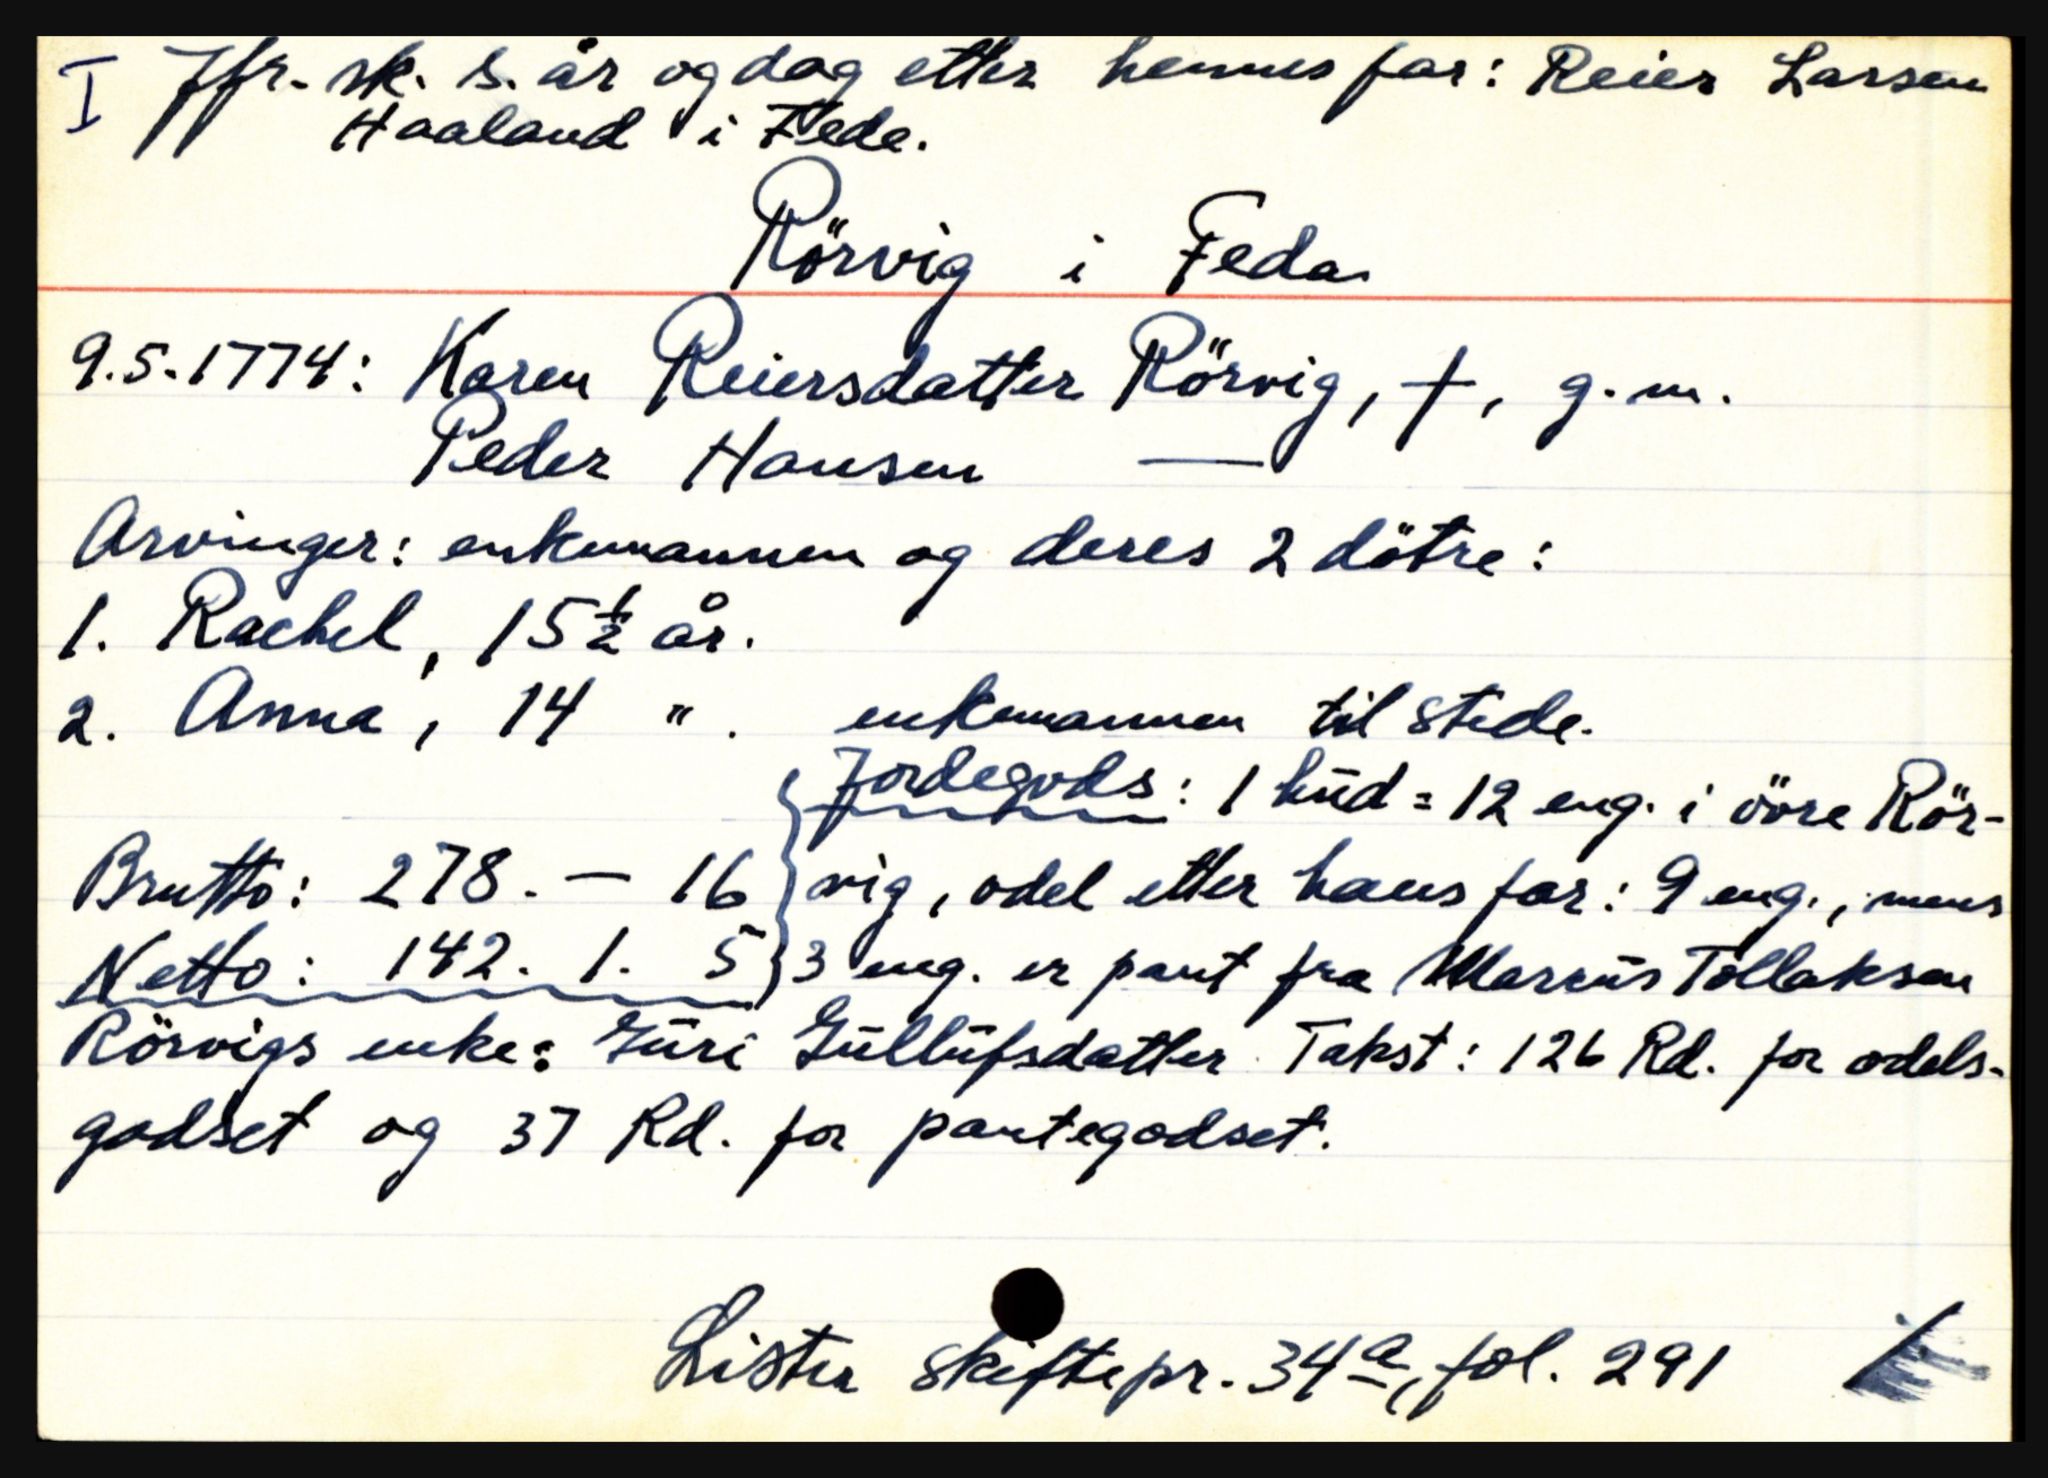 I Jfr. sk. s. år og dag etter hennes far: Reier Larsen
Haaland i Feda.
Rörvig i Feda
9.5.1774: Karen Reiersdatter Rörvig, †, g.m.
Peder Hansen —
Arvinger: enkemannen og deres 2 dötre:
1. Rachel, 15 1/2 år.
2. Anna, 14 " . enkemannen til stede.
Jordegods: 1 hūd = 12 eng. i övre Rör-
Brutto: 278. — 16 } vig, odel etter hans far: 9 eng., mens
Netto: 142. 1. 5 } 3 eng. er pant fra Marcūs Tollaksen
Rörvigs enke: Gūri Gūllūfsdatter. Takst: 126 Rd. for odels-
godset og 37 Rd. for pantegodset.
Lister skiftepr. 34a, fol. 291